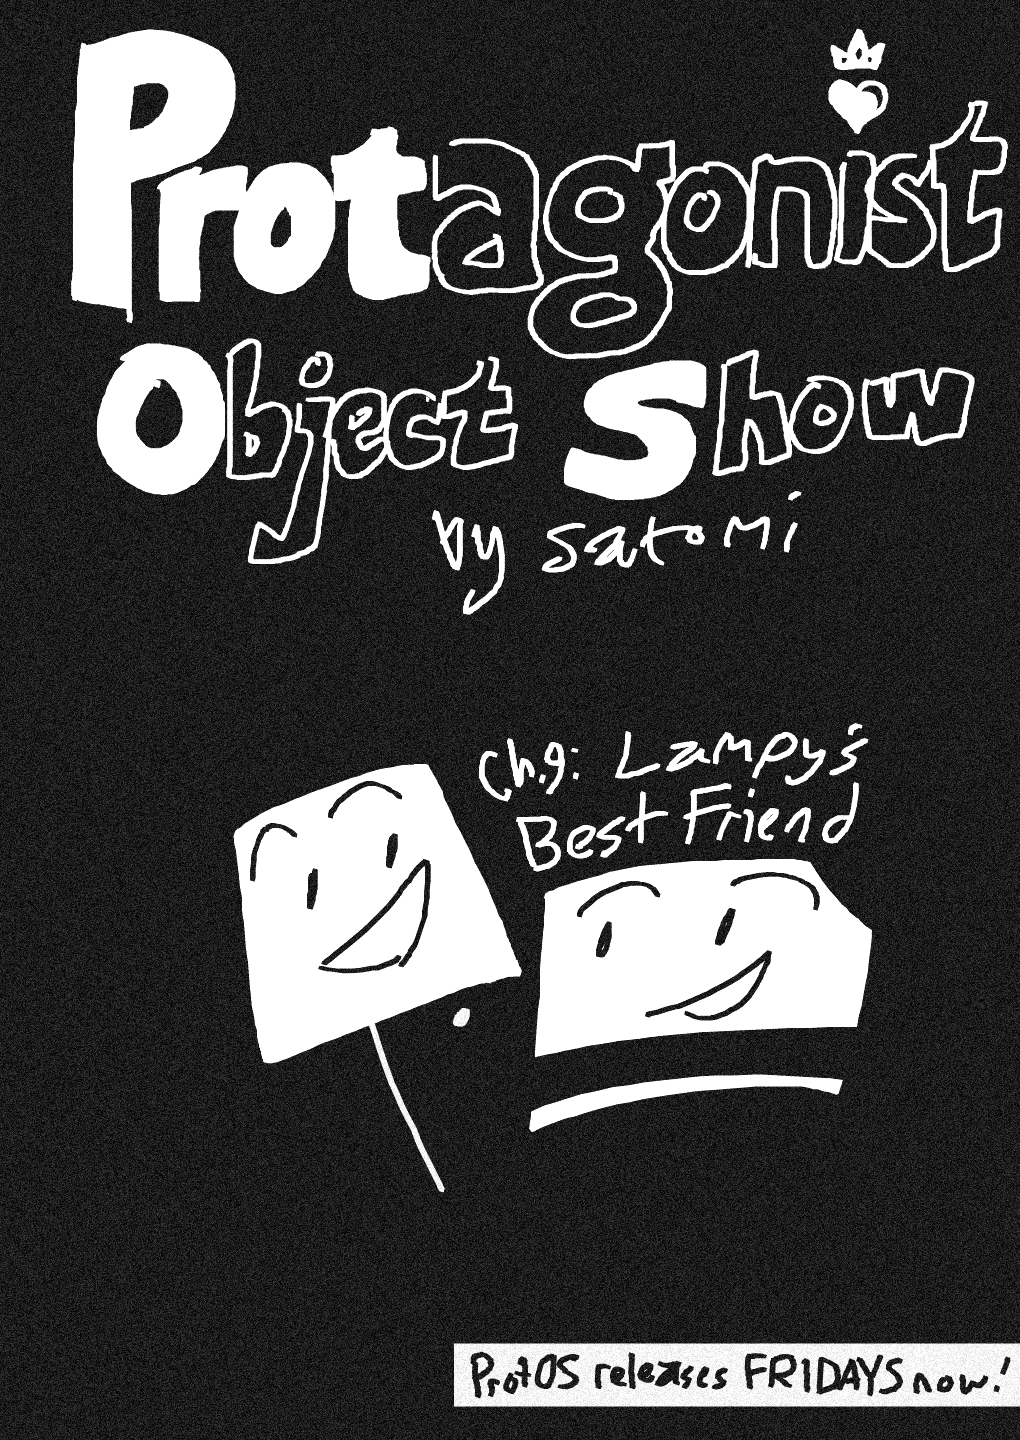 Protagonist
Object Show
by satomi
Ch.9: Lampy's
Best Friend
ProtOS releases FRIDAYS now!